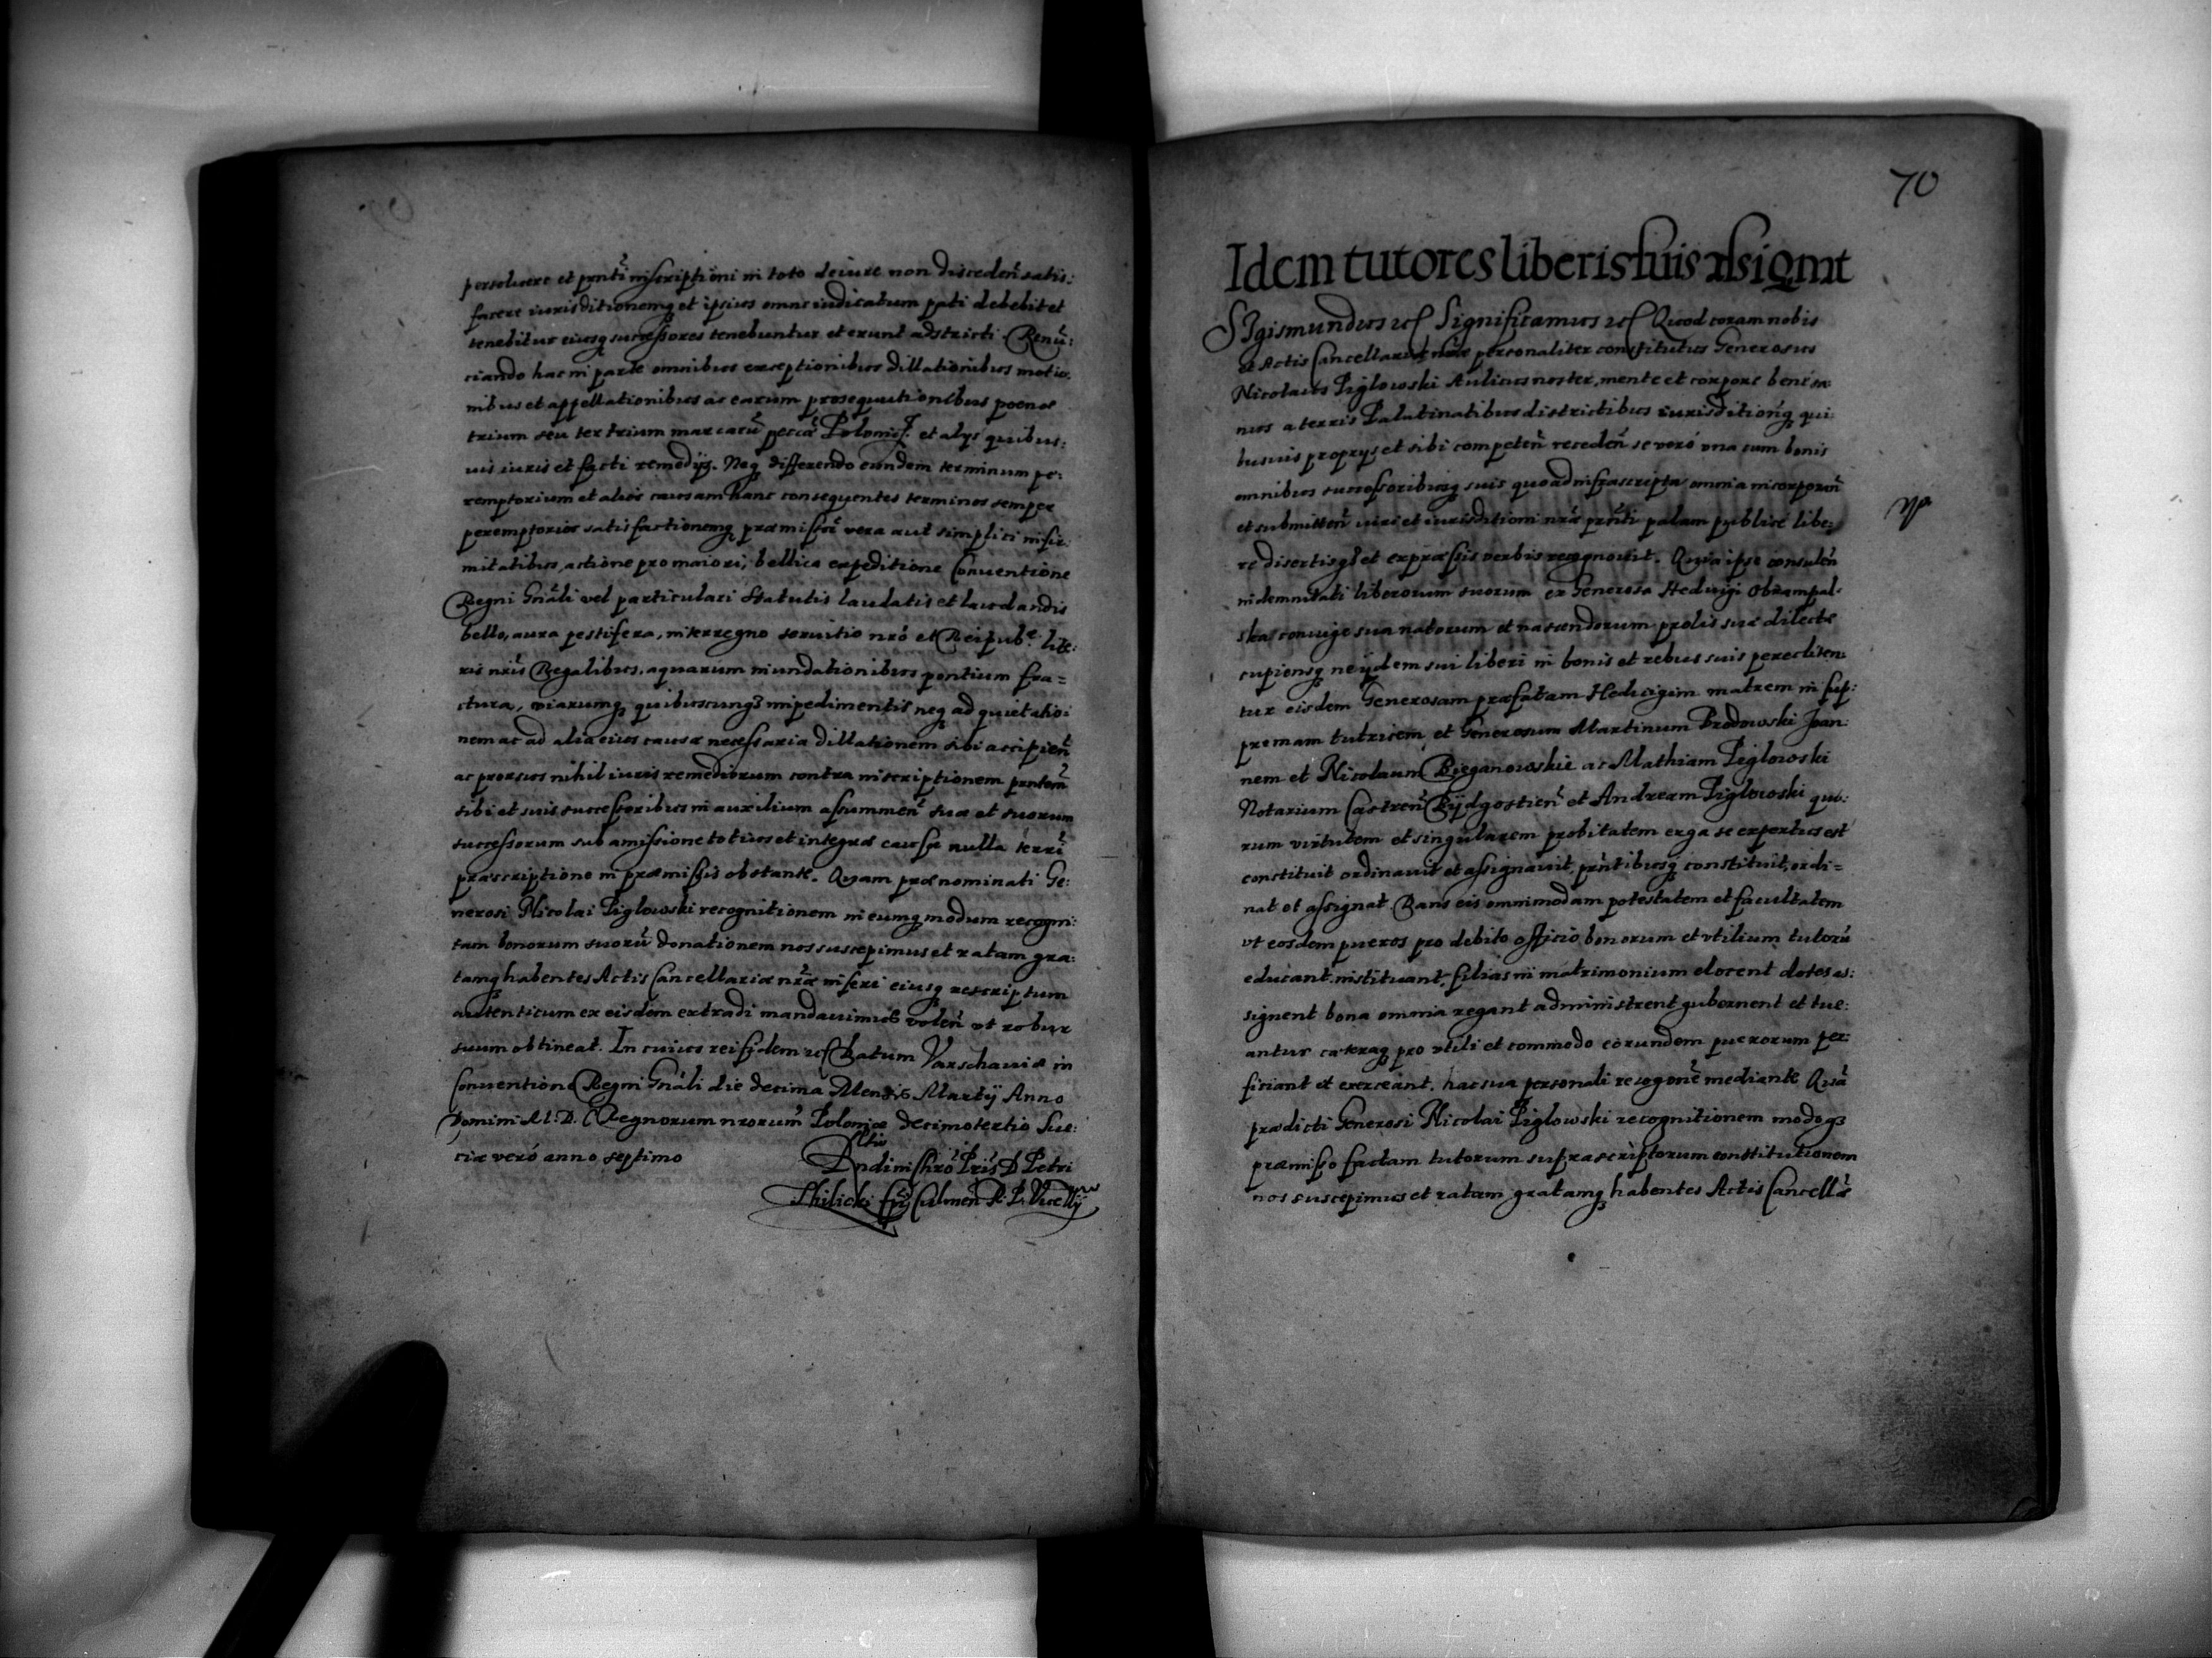 persoluere et pnti inscriptioni in toto de iure non disceden̄ satis:
facere iurisditionemq̨ et ipsius omne iudicatum pati debebit et
tenebitur eiusq̨ successores tenebuntur et erunt adstricti. Renū:
ciando hac in parte omnibus exceptionibus dillationibus motio:
nibus et appellationibus ac earum prosequutionibus poenae
trium seu ter trium marcarū peccae Polonis. et alijs quibus:
uis iuris et facti remedijs. Neq̨ differendo eundem terminum pe:
remptorium et alios causam hanc consequentes terminos semper
peremptorios satisfactionemq̨ praemissor̄ vera aut simplici infir:
mitatibus, actione pro maiori, bellica expeditione Conuentione
Regni Gnāli vel particulari statutis laudatis et laudandis
bello, aura pestifera, interregno seruitio nrō et Reipub. lite:
ris nris Regalibus, aquarum inundationibus pontium fra=
ctura, viarumq̨ quibuscunq̨ impedimentis neq̨ ad quietatio:
nem ac ad alia eius causae necessaria dillationem sibi accipien̄
ac prorsus nihil iuris remediorum contra inscriptionem pnntem
sibi et suis successoribus in auxilium assummen̄ suae et suorum
successorum sub amissione totius et integrae causae nulla terrī
praescriptione in praemissis obstante. Quam praenominati Ge:
nerosi Nicolai Piglowski recognitionem in eumq̨ modum recogni:
tam bonorum suorū donationem nos suscepimus et ratam gra:
tamq̨ habentes Actis Cancellariae nrae inseri eiusq̨ rescriptum
autenticum ex eisdem extradi mandauimus volen̄ vt robur
suum obtineat. In cuius rei fidem etc Datum Varschauiae in
Conuentione Regni Gnāli die decima Mensis Martij Anno
Domini M. D. C Regnorum nrorum Poloniae decimotertio Sue:
ciae verò anno septimo
Petri
Thilicki Culmen R. P. Vicecllij
70
Idem tutores liberis suis assignat
SIgismundus etc Significamus etc Quod coram nobis
et Actis Cancellariae nrae personaliter constitutus Generosus
Nicolaus Piglowski Aulicus noster, mente et corpore bene sa:
nus a terris Palatinatibus districtibus iurisditionq̨ qui:
busuis proprijs et sibi competen̄ receden̄ se verò vna cum bonis
omnibus successoribusq̨ suis quo ad infrascripta omnia incorporan̄
et submitten̄ iuri et iurisditioni nrae pnti palam publice libe:
re disertisq̨ et expraessis verbis recognouit. Quia ipse consulen̄
indemnitati liberorum suorum ex Generosa Hedwigi Obrampal:
ska coniuge sua natorum et nascendorum prolis suae dilectae
cupiensq̨ ne ijdem sui liberi in bonis et rebus suis perecliten:
tur eisdem Generosam praefatam Hedwigim matrem in sup:
premam tutricem, et Generosum Martinum Brodowski Joan:
nem et Nicolaum Bieganowskie ac Mathiam Piglowski
Notarium Castren̄ Bÿdgostien̄ et Andream Piglowski quo:
rum virtutem et singularem probitatem erga se expertus est
constituit ordinauit et assignauit, pntibusq̨ constituit, ordi=
nat et assignat. Dans eis omnimodam potestatem et facultatem
vt eosdem pueros pro debito officio bonorum et vtilium tutorū
educant, instituant, filias in matrimonium elocent dotes as:
signent bona omnia regant administrent gubernent et tue:
antur caeteraq̨ pro vtili et commodo eorundem puerorum per:
ficiant et exerceant. hac sua personali recogone mediante. Quā
praedicti Generosi Nicolai Piglowski recognitionem modoq̨
praemisso factam tutorum suprascriptorum constitutionem
nos suscepimus et ratam gratamq̨ habentes Actis Cancellae